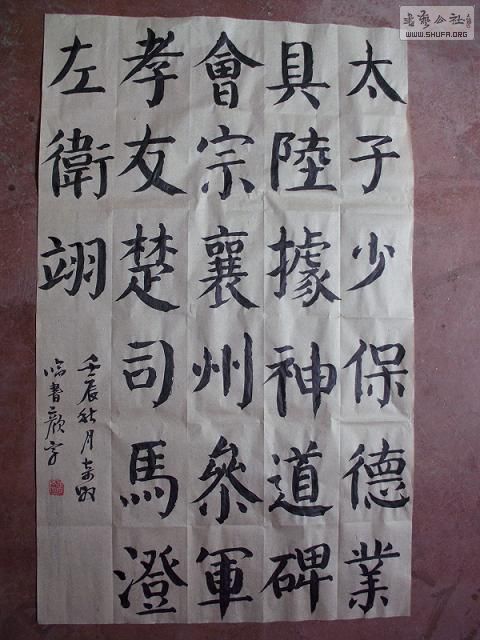 太子少保德業
具陸據神道碑
會宗襄州參軍
孝友楚司馬澄
左衛翊
壬辰秋月
臨書顏字
書藝公社
WWW.SHUFA.ORG